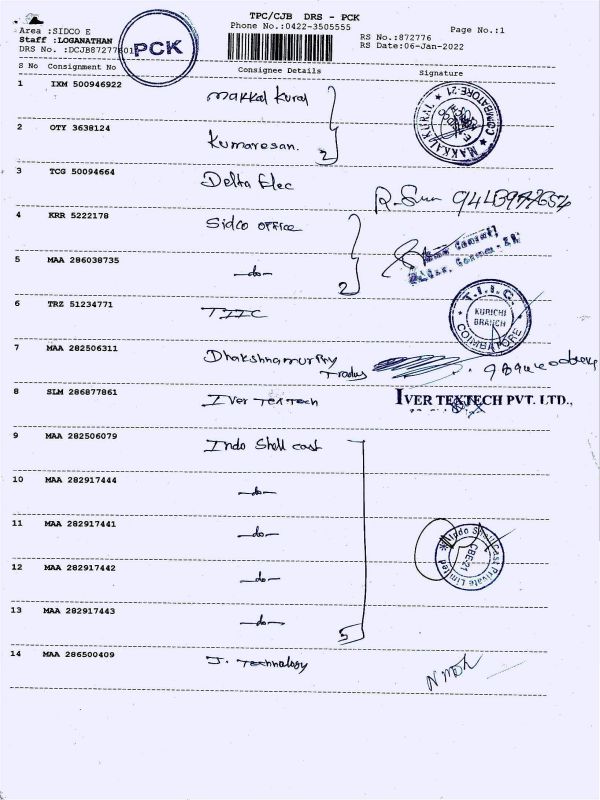 TPC/CJB DRS - PCK
Phone No.:0422-3505555
Page No.:1
Area :SIDCO E
Staff :LOGANATHAN
RS No.:872776
RS Date:06-Jan-2022
PCK
S No Consignment No Consignee Details Signature
1 IXM 500946922 Makkal Kural
COIMBATORE-21
MAKKAL KURAL
2 OTY 3638124 Kumaresan.
2
3 TCG 50094664 Delta Elec
4 KRR 5222178 Sidco office
5 MAA 286038735 -do-
2
6 TRZ 51234771 TIIC
T.I.I.C.
KURICHI
BRANCH
COIMBATORE
7 MAA 282506311 Dhakshnamurthy
Tradus
8 SLM 286877861 Iver TexTech
IVER TEXTECH PVT. LTD.,
9 MAA 282506079 Indo Shell cast
10 MAA 282917444 -do-
11 MAA 282917441 -do-
Indo Shellcast Private Limited
CBE-21
12 MAA 282917442 -do-
13 MAA 282917443 -do-
5
14 MAA 286500409 J. Technology